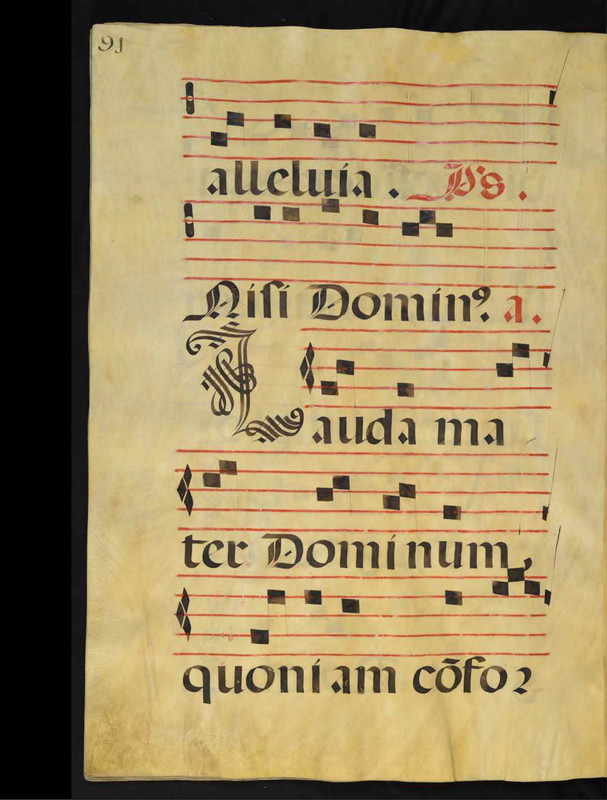 91
alleluia . Ps .
Nisi Domin⁹. a .
Lauda ma
ter Dominum,
quoniam cōfoꝛ